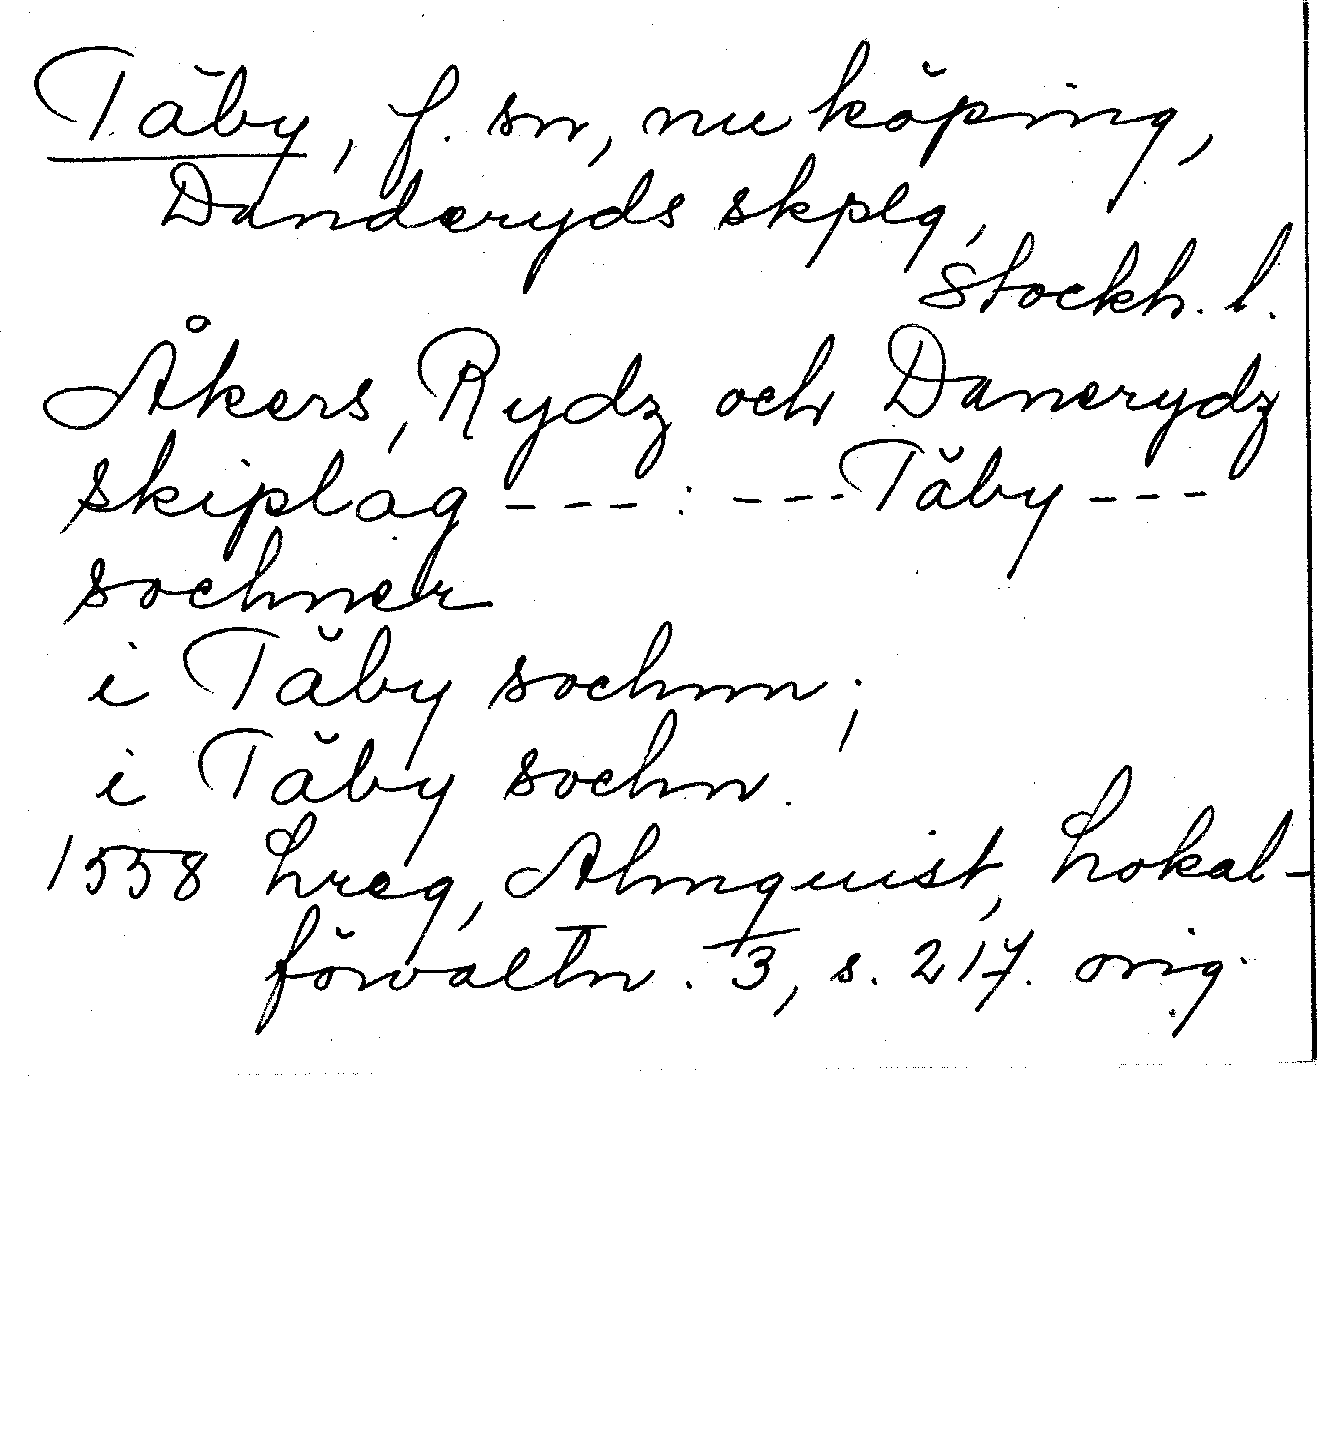 Täby, f. sn, nu köping,
Danderyds skplg,
Stockh. l.
Åkers, Rydz och Danerydz
skiplag ---:---Täby---
sochner
i Täby sochnn;
i Täby sochn.
1558 Lreg, Almquist, Lokal-
förvaltn. 3, s. 217. orig.